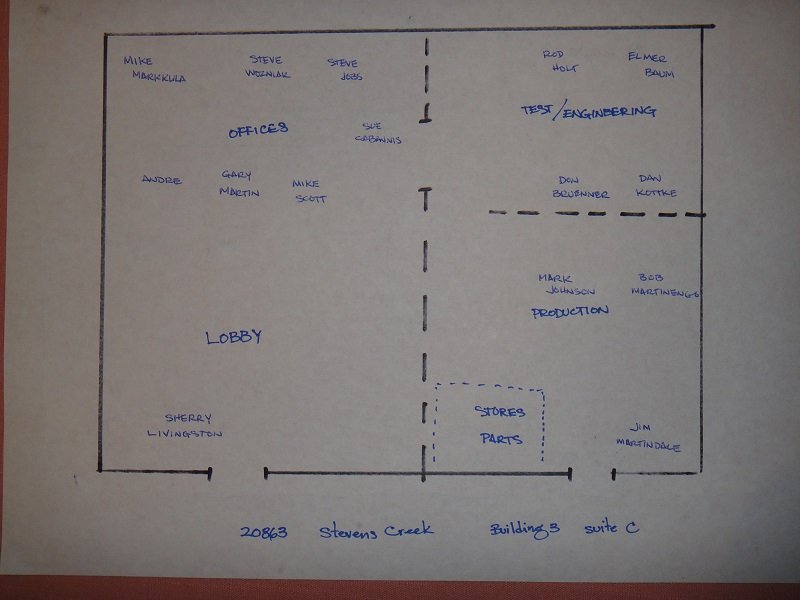 MIKE
MARKKULA
STEVE
WOZNIAK
STEVE
JOBS
OFFICES
SUE
CABANNIS
ANDRE
GARY
MARTIN
MIKE
SCOTT
LOBBY
SHERRY
LIVINGSTON
ROD
HOLT
ELMER
BAUM
TEST/ENGINEERING
DON
BRUENNER
DAN
KOTTKE
MARK
JOHNSON
BOB
MARTINENGO
PRODUCTION
STORES
PARTS
JIM
MARTINDALE
20863 Stevens Creek Building 3 suite C